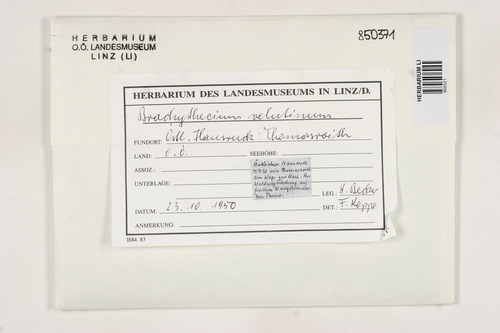 HERBARIUM
O.Ö. LANDESMUSEUM
LINZ (LI)
850371
HERBARIUM LI
HERBARIUM DES LANDESMUSEUMS IN LINZ/D.
Brachythecium velutinum
FUNDORT: Östl. Hausruck: Thomasroith
LAND: O.Ö. SEEHÖHE:
ASSOZ.:
UNTERLAGE:
Östlicher Hausruck
von Thomasroith
am Weg zur
LEG. H. Becker
DATUM: 23. 10. 1950 DET. F. Koppe
ANMERKUNG:
1884 83